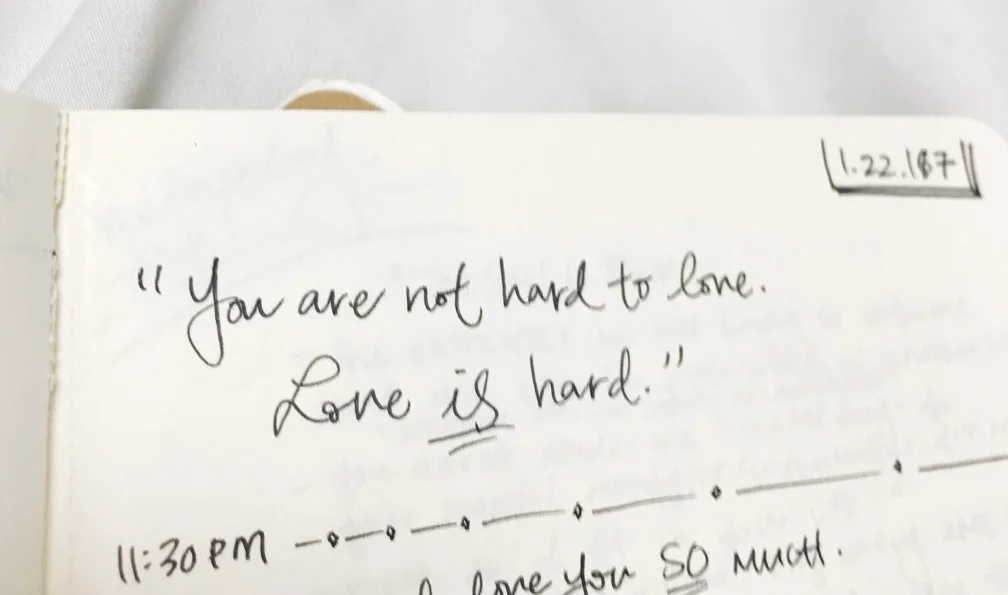 1.22.187
"You are not hard to love.
Love is hard."
11:30 PM
I love you SO much.